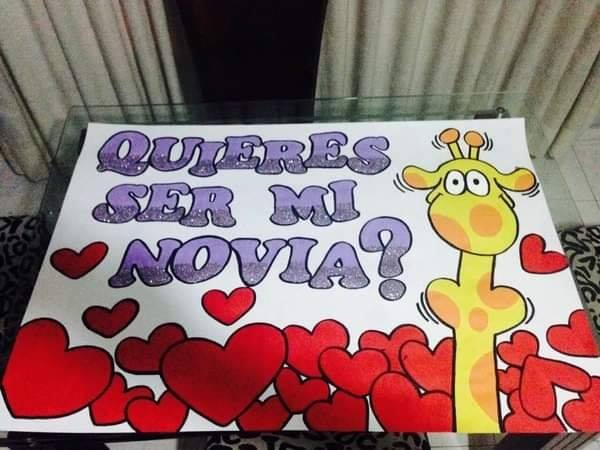 QUIERES
SER MI
NOVIA?